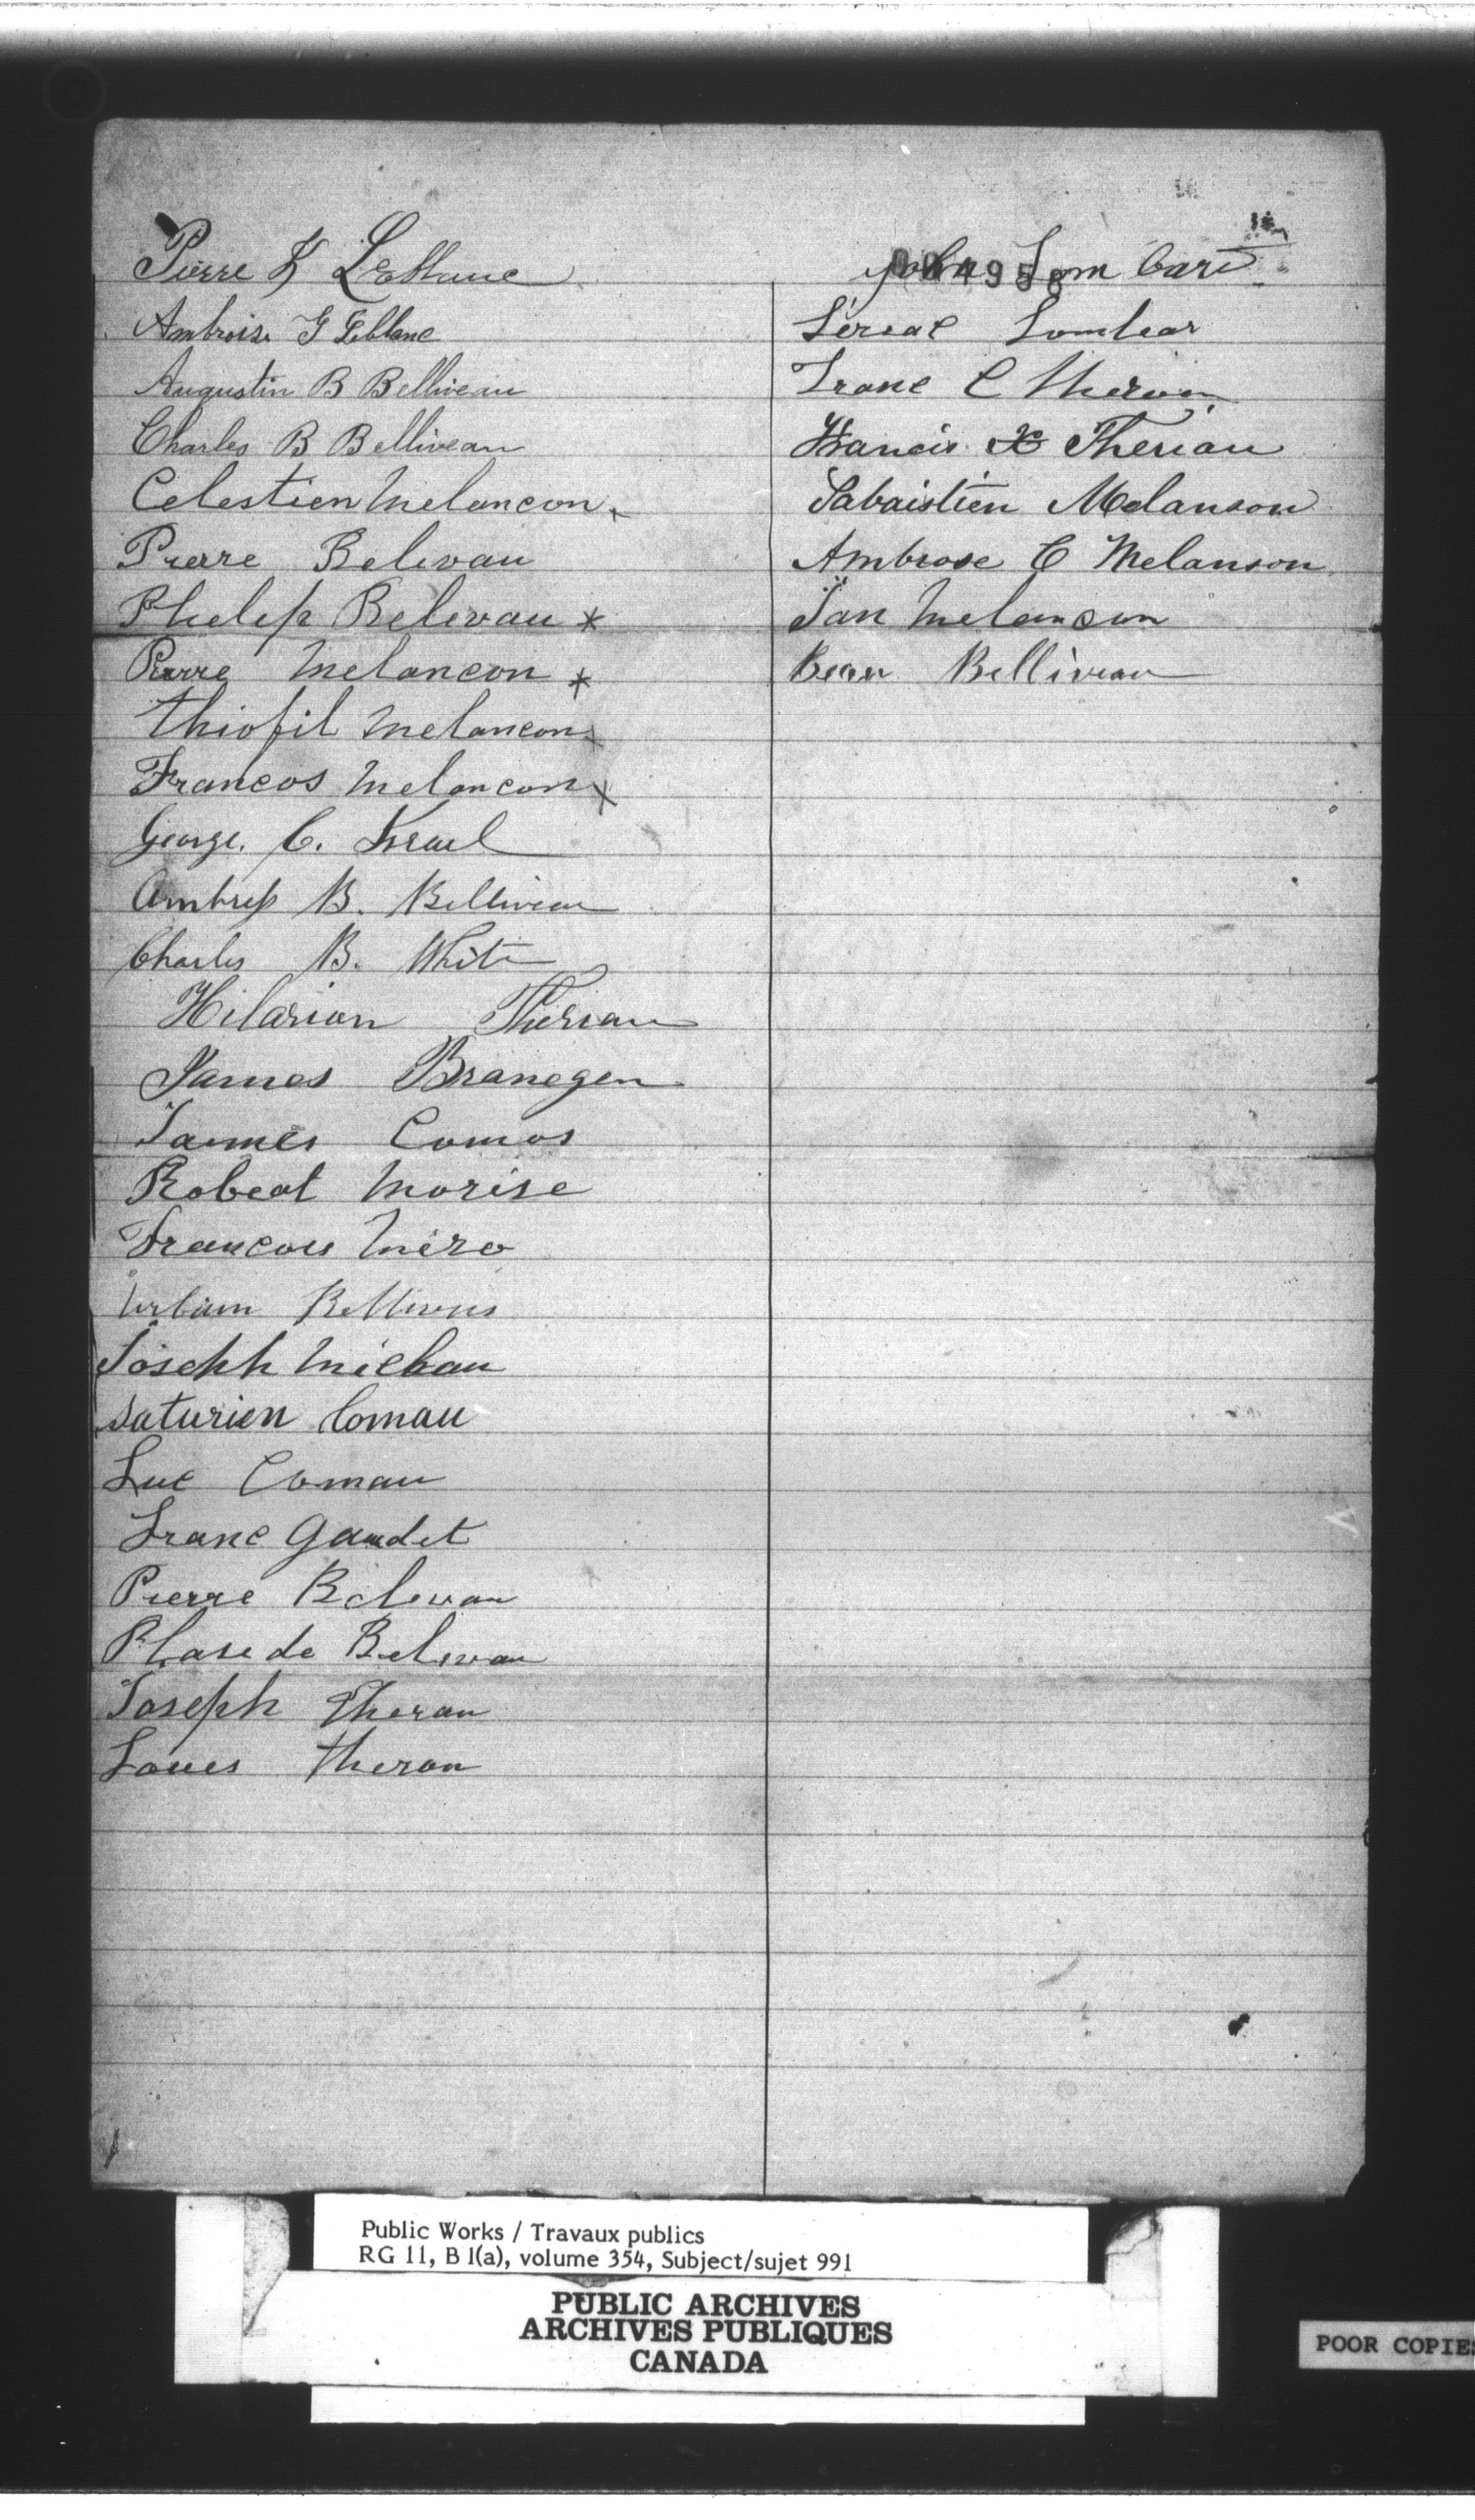 Pierre L LeBlanc
Ambroise G Leblanc
Augustin B Belliveau
Charles B Belliveau
Celestien Melancon x
Pierre Belevau
Phelep Belevau *
Pierre Melancon *
Thiofil Melancon x
Francos Melancon x
George. C. Israel
Ambress B. Belliveau
Charles B. White
Hilarion Theriau
James Branegen
Jaumes Comos
Robeat Morise
Francois Miro
Urbain
Joseph Michau
Saturien Comau
Luc Comau
Franc Gaudet
Pierre Belevau
Plasede Belevau
Joseph Therau
Loues Therau
John Lom bare
004958
Lombear
Franc C
Francis X Theriau
Sabaistien Melanson
Ambrose C Melanson
Jan Melancon
Belliveau
Public Works / Travaux publics
RG 11, B 1(a), volume 354, Subject/sujet 991
PUBLIC ARCHIVES
ARCHIVES PUBLIQUES
CANADA
POOR COPIES